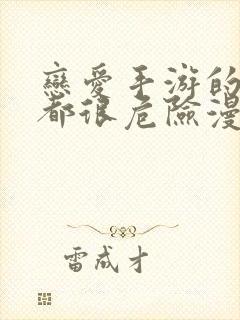 戀愛手游的
都很危險漫
雷成才